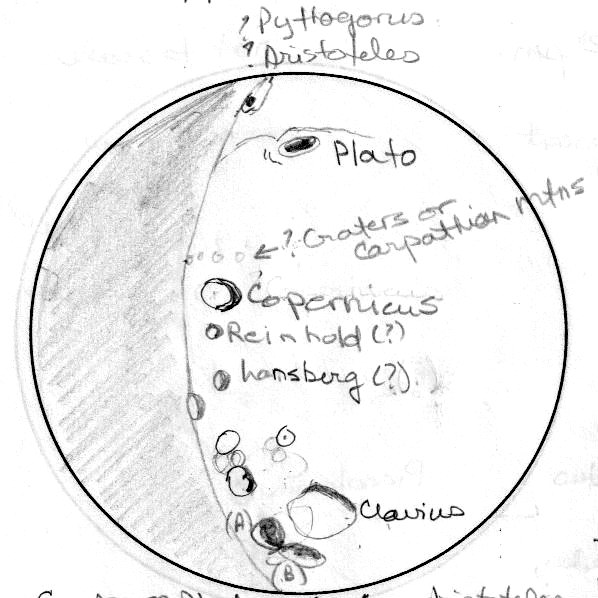 ? Pythogorus
? Aristoteles
Plato
? Craters or
carpathian mtns
?
Copernicus
Reinhold (?)
hansberg (?)
Clavius
(A)
(B)